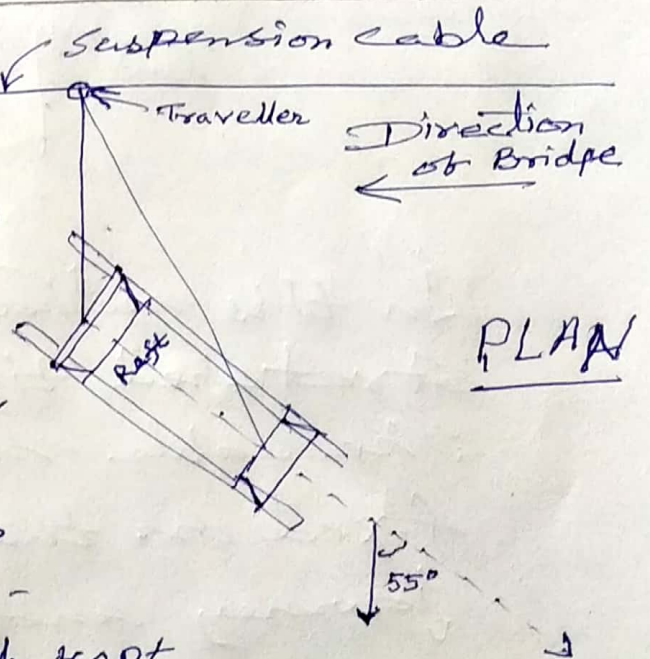 Suspension cable
Traveller
Direction
of Bridge
Raft
PLAN
55°
kept